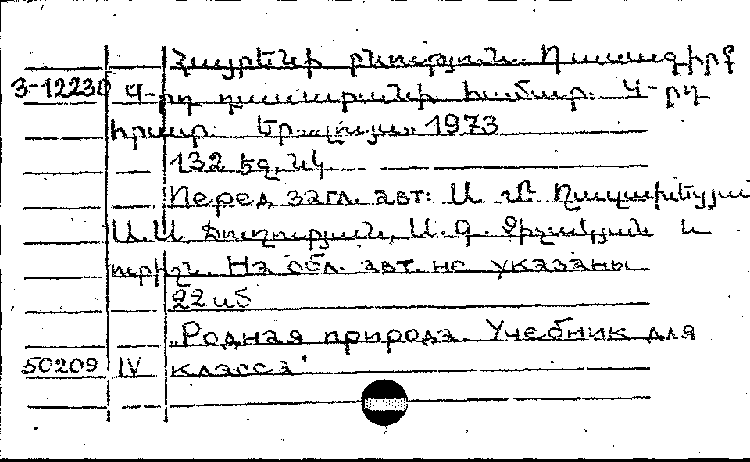 Հայրենի բնություն. Դասագիրք
3-12230 4-րդ դասարանի համար. 4-րդ
հրատ. Եր., Լույս, 1973
132 էջ, նկ
Перед загл. авт: Ա.
Ա.Ա. Ա.Գ. և
ուրիշ. На обл. авт. не указаны
22 սմ
„Родная природа. Учебник для
50209 IV класса"